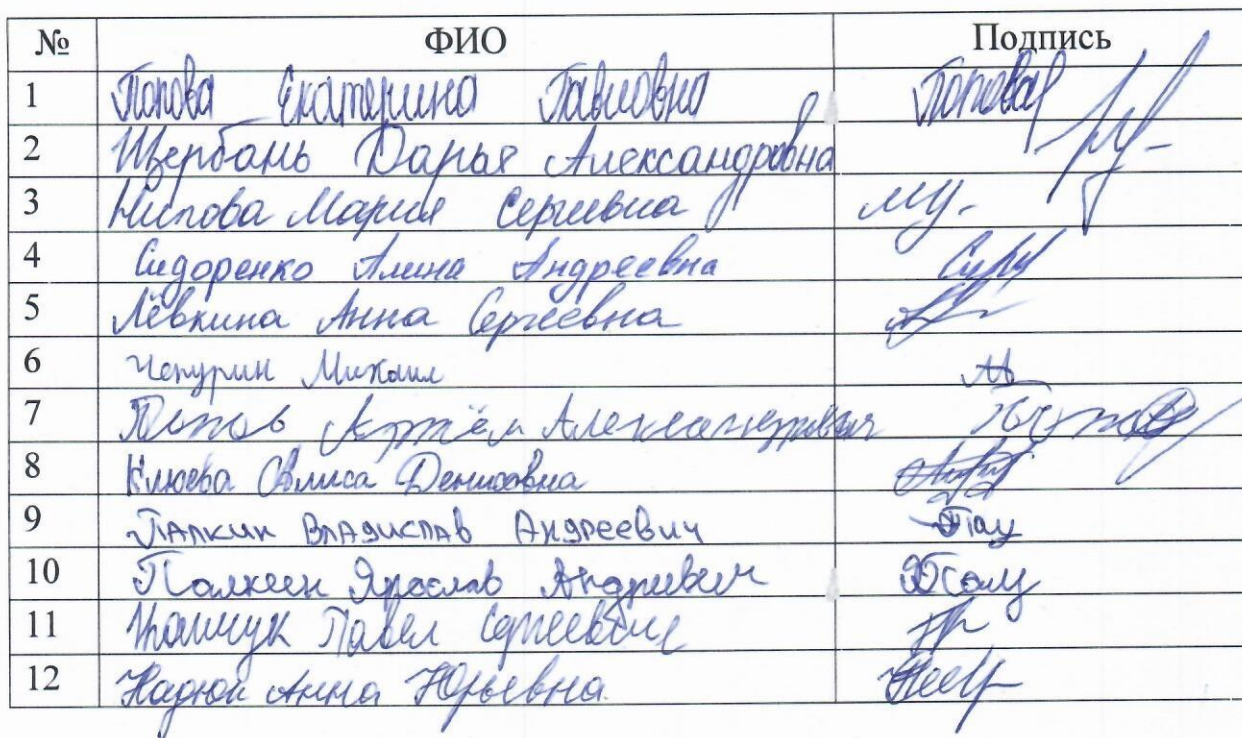 № ФИО Подпись
1 Попова Екатерина Павловна Попова
2 Щербань Дарья Александровна
3 Мария Сергеевна
4 Сидоренко Алина Андреевна
5 Лёвкина Анна Сергеевна
6 Чепурин Михаил
7 Попов Артём Александрович
8 Клюева Алиса Денисовна
9 Палкин Владислав Андреевич
10 Палкин Ярослав Андреевич
11 Павел Сергеевич
12 Надюк Анна Юрьевна